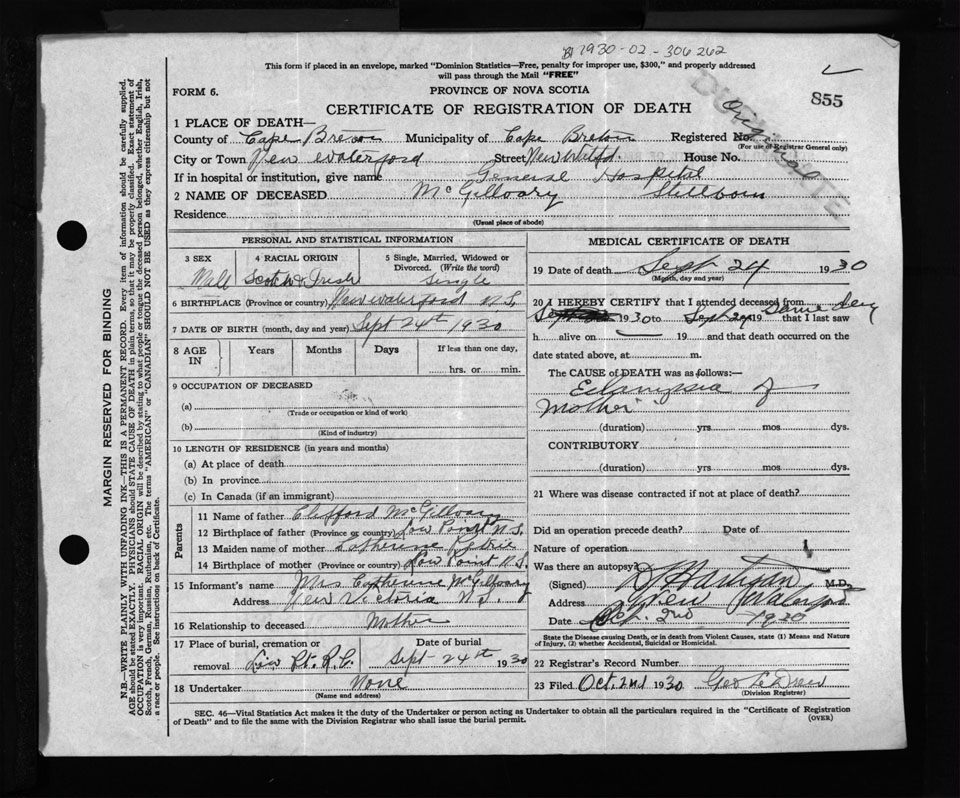 1930-02-306262
This form if placed in an envelope, marked "Dominion Statistics—Free, penalty for improper use, $300," and properly addressed
will pass through the Mail "FREE"
FORM 6.
PROVINCE OF NOVA SCOTIA
DUPLICATE
Original
855
CERTIFICATE OF REGISTRATION OF DEATH
1 PLACE OF DEATH—
County of Cape Breton Municipality of Cape Breton Registered No.
(For use of Registrar General only)
City or Town New Waterford Street New Watfd. House No.
If in hospital or institution, give name General Hospital
2 NAME OF DECEASED McGillvary Stillborn
Residence
(Usual place of abode)
PERSONAL AND STATISTICAL INFORMATION
3 SEX 4 RACIAL ORIGIN 5 Single, Married, Widowed or Divorced. (Write the word)
Male Scotch & Irish Single
6 BIRTHPLACE (Province or country) New Waterford N.S.
7 DATE OF BIRTH (month, day and year) Sept 24th 1930
8 AGE IN Years Months Days If less than one day,
hrs. or min.
9 OCCUPATION OF DECEASED
(a)
(Trade or occupation or kind of work)
(b)
(Kind of industry)
10 LENGTH OF RESIDENCE (in years and months)
(a) At place of death
(b) In province
(c) In Canada (if an immigrant)
Parents
11 Name of father Clifford McGillvary
12 Birthplace of father (Province or country) Low Point N.S.
13 Maiden name of mother Catherine
14 Birthplace of mother (Province or country) Low Point N.S.
15 Informant's name Mrs Catherine McGillvary
Address New Victoria N.S.
16 Relationship to deceased Mother
17 Place of burial, cremation or removal Low Pt. R.C. Date of burial Sept 24th 1930
18 Undertaker None
(Name and address)
MEDICAL CERTIFICATE OF DEATH
19 Date of death Sept 24 1930
(Month, day and year)
20 I HEREBY CERTIFY that I attended deceased from
1930 to Sept 24 19 same day that I last saw
h alive on 19 and that death occurred on the
date stated above, at m.
The CAUSE of DEATH was as follows:—
Eclampsia of
Mother
(duration) yrs mos dys.
CONTRIBUTORY
(duration) yrs. mos. dys.
21 Where was disease contracted if not at place of death?
Did an operation precede death? Date of
Nature of operation
Was there an autopsy?
(Signed) M.D.
Address New Waterford
Date Oct. 2nd 1930
State the Disease causing Death, or in death from Violent Causes, state (1) Means and Nature
of Injury, (2) whether Accidental, Suicidal or Homicidal.
22 Registrar's Record Number
23 Filed Oct. 2nd 1930 Geo
(Division Registrar)
SEC. 46—Vital Statistics Act makes it the duty of the Undertaker or person acting as Undertaker to obtain all the particulars required in the "Certificate of Registration
of Death" and to file the same with the Division Registrar who shall issue the burial permit.
(OVER)
MARGIN RESERVED FOR BINDING
N.B.—WRITE PLAINLY WITH UNFADING INK—THIS IS A PERMANENT RECORD. Every item of information should be carefully supplied.
AGE should be stated EXACTLY. PHYSICIANS should STATE CAUSE OF DEATH in plain terms, so that it may be properly classified. Exact statement of
OCCUPATION is very important. RACIAL ORIGIN will be described by stating to what people or tongue the deceased person belonged, whether English, Irish,
Scotch, French, German, Russian, Ruthenian, etc. The terms "AMERICAN" or "CANADIAN" SHOULD NOT BE USED as they express citizenship but not
a race or people. See instructions on back of Certificate.